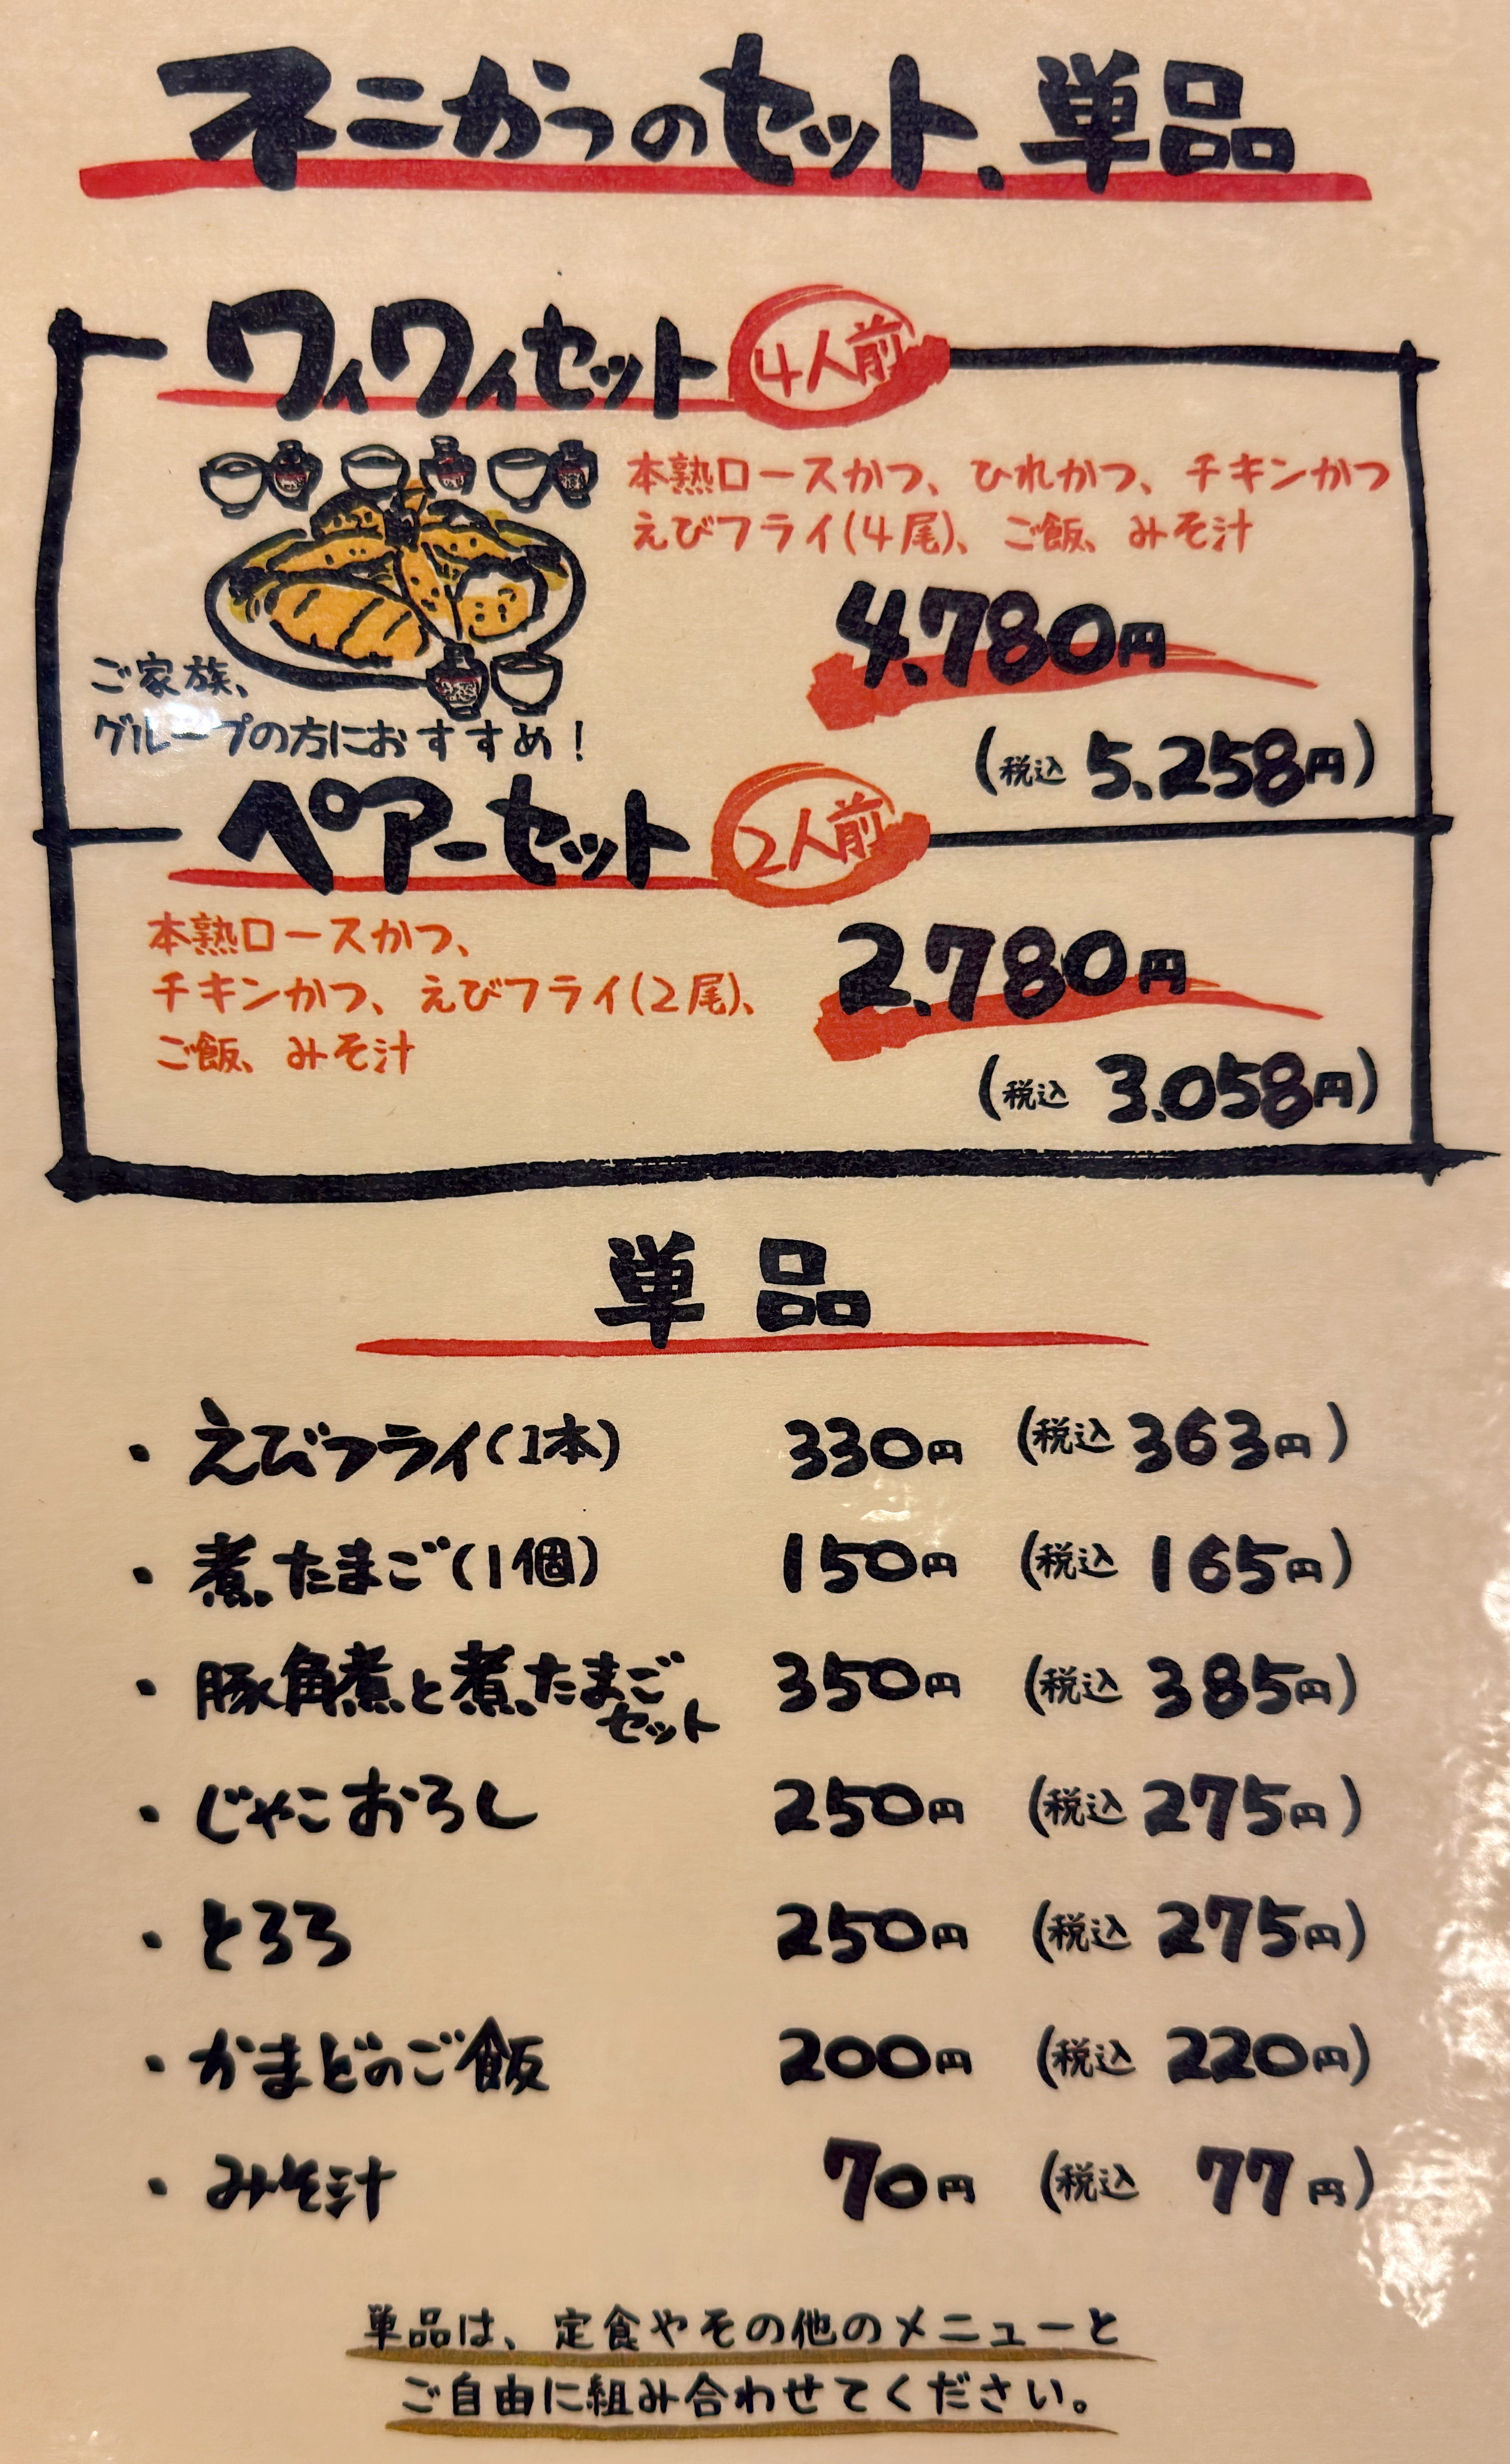 ネニかつのセット、単品
ワィワィセット 4人前
本熟ロースかつ、ひれかつ、チキンかつ
えびフライ(4尾)、ご飯、みそ汁
4,780円
(税込 5,258円)
ご家族、
グループの方におすすめ!
ペアーセット 2人前
本熟ロースかつ、
チキンかつ、えびフライ(2尾)、
ご飯、みそ汁
2,780円
(税込 3,058円)
単品
・えびフライ(1本) 330円 (税込 363円)
・煮たまご(1個) 150円 (税込 165円)
・豚角煮と煮たまごセット 350円 (税込 385円)
・じゃこおろし 250円 (税込 275円)
・とろろ 250円 (税込 275円)
・かまどのご飯 200円 (税込 220円)
・みそ汁 70円 (税込 77円)
単品は、定食やその他のメニューと
ご自由に組み合わせてください。